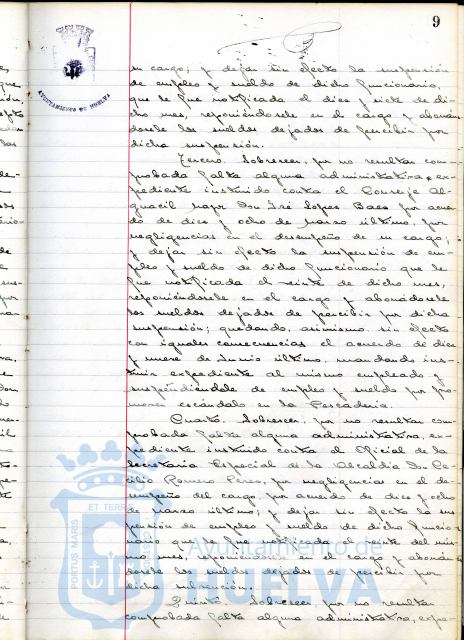 9
AYUNTAMIENTO DE HUELVA
su cargo; y dejar sin efecto la suspensión
de empleo y sueldo de dicho funcionario,
que le fue notificada el diez y siete de di-
cho mes, reponiéndosele en el cargo y abonán-
dosele los sueldos dejados de percibir por
dicha suspensión.
Tercero. Sobreseer, por no resultar com-
probada falta alguna administrativa, ex-
pediente instruído contra el Conserje Al-
guacil Mayor Don José López Baes por acuer-
do de diez y ocho de Marzo último, por
negligencias en el desempeño de su cargo;
y dejar sin efecto la suspensión de em-
pleo y sueldo de dicho funcionario que le
fue notificada el veinte de dicho mes,
reponiéndosele en el cargo y abonándosele
los sueldos dejados de percibir por dicha
suspensión; quedando, asimismo, sin efecto
con iguales consecuencias el acuerdo de diez
y nueve de Junio último, mandando ins-
truir expediente al mismo empleado y
suspendiéndole de empleo y sueldo por pro-
mover escándalo en la Pescadería.
Cuarto. Sobreseer, por no resultar com-
probada falta alguna administrativa, ex-
pediente instruído contra el Oficial de la
Secretaría Especial de la Alcaldía Don Ce-
cilio Romero Pérez, por negligencias en el de-
sempeño del cargo por acuerdo de diez y ocho
de Marzo último; y dejar sin efecto la sus-
pensión de empleo y sueldo de dicho funcio-
nario que le fue notificada el veinte del mis-
mo mes, reponiéndosele en el cargo y abonán-
dosele los sueldos dejados de percibir por
dicha
Quinto. Sobreseer por no resultar
comprobada falta alguna administrativa, expe-
PORTUS MARIS
ET TERR
Ayuntamiento de
HUELVA